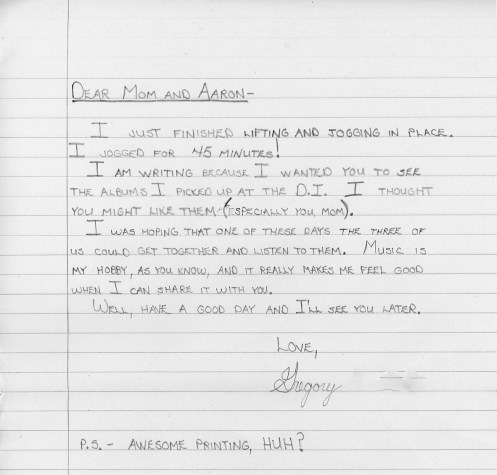 Dear Mom and Aaron-
I just finished lifting and jogging in place.
I jogged for 45 minutes!
I am writing because I wanted you to see
the albums I picked up at the D.I. I thought
you might like them-(especially you, Mom).
I was hoping that one of these days the three of
us could get together and listen to them. Music is
my hobby, as you know, and it really makes me feel good
when I can share it with you.
Well, have a good day and I'll see you later.
Love,
Gregory
P.S.- Awesome printing, huh?